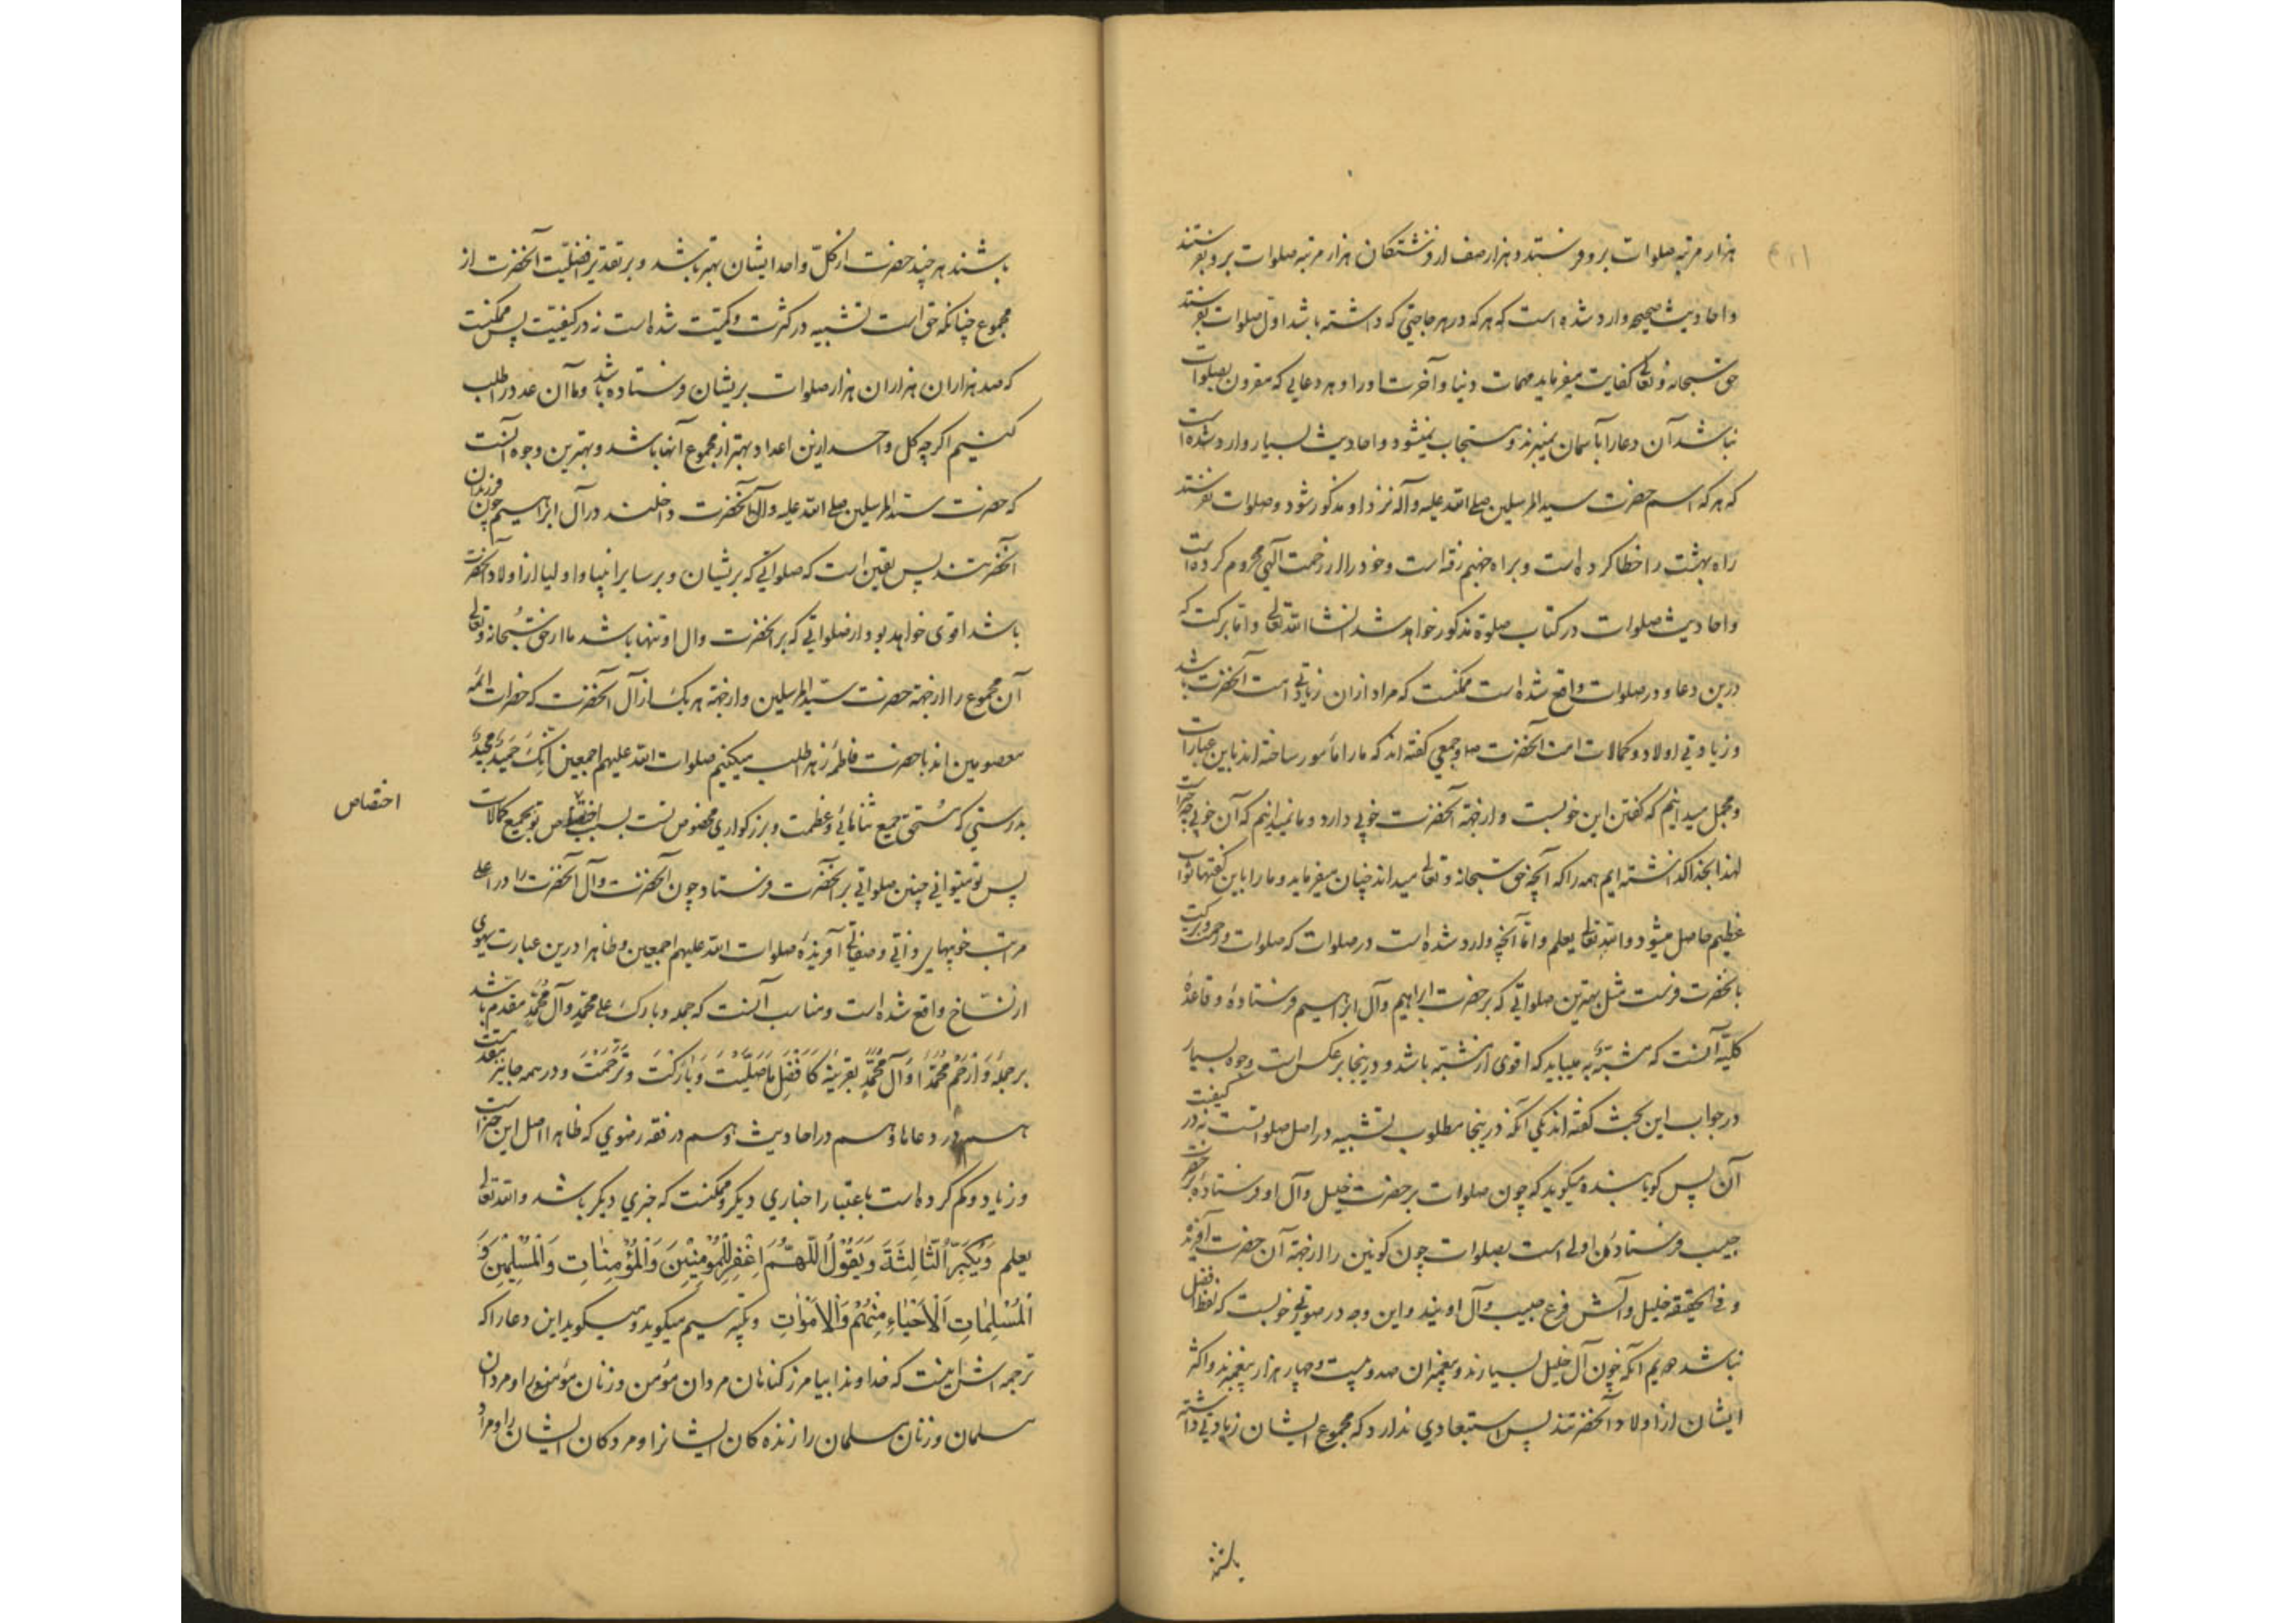 هزار مرتبه صلوات برو فرستند و هزار صف از فرشتکان هزار مرتبه صلوات برو بفرستند
و احادیث صحیحه وارد شده است که هر که در هر حاجتی که داشته باشد اول صلوات بفرستند
حق سبحانه و تعالی کفایت میفرماید مهمات دنیا و آخرت او را و هر دعایی که مقرون بصلوات
نباشد آن دعا را بآسمان نمیبرند و مستجاب نمیشود و احادیث بسیار وارد شده است
که هر که اسم حضرت سید المرسلین صلی الله علیه و آله نزد او مذکور شود و صلوات نفرستند
راه بهشت را خطا کرده است و براه جهنم رفته است و خود را از رحمت آلهی محروم کرده است
و احادیث صلوات در کتاب صلوة مذکور خواهد شد انشا الله تعالی و اما برکت که
درین دعا و در صلوات واقع شده است ممکنست که مراد از ان زیادتی امت آنحضرت باشد
و زیادتی اولاد و کمالات امت آنحضرت و جمعی کفته اند که ما را مأمور ساخته اند باین عبارات
و مجمل میدانیم که کفتن این خوبست و از جهة آنحضرت خوبی دارد و ما نمیدانیم که آن خوبی چه چیز است
لهذا بخدا کذاشته ایم همه را که آنچه حق سبحانه و تعالی میداند چنان میفرماید و ما را باین کفتنها ثواب
عظیم حاصل میشود و الله تعالی یعلم و اما آنچه وارد شده است در صلوات که صلوات و رحمت و برکت
بآنحضرت فرست مثل بهترین صلواتی که بر حضرت ابراهیم و آل ابراهیم فرستادهٔ و قاعدهٔ
کلیه آنست که مشبه به میباید که اقوی از مشبه باشد و درینجا بر عکس است وجوه بسیار
در جواب این بحث کفته اند یکی آنکه درینجا مطلوب تشبیه در اصل صلواتست نه در کیفیت
آن پس کویا بنده میکوید که چون صلوات بر حضرت خلیل و آل او فرستادهٔ بر حضرت
حبیب فرستادن اولی است بصلوات چون کونین را از جهة آن حضرت آفریدهٔ
و فی الحقیقه خلیل و آلش فرع حبیب و آل اویند و این وجه در صورتی خوبست که لفظ افضل
نباشد دویم آنکه چون آل خلیل بسیارند و پیغمبران صد و بیست و چهار هزار پیغمبرند و اکثر
ایشان از اولاد آنحضرتند پس استبعادی ندارد که مجموع ایشان زیادتی داشته
باشند
باشند هر چند حضرت از کل واحد ایشان بهتر باشد و بر تقدیر افضلیت آنحضرت از
مجموع چنانکه حق است تشبیه در کثرت و کمیت شده است نه در کیفیت پس ممکنست
که صد هزاران هزاران هزار صلوات بریشان فرستاده باشد و ما آن عدد را طلب
کنیم اکرچه کل واحد ازین اعداد بهتر از مجموع آنها باشد و بهترین وجوه آنست
که حضرت سید المرسلین صلی الله علیه و آله و آل آنحضرت داخلند در آل ابراهیم چون فرزندان
آنحضرتند پس یقین است که صلواتی که بریشان و بر سایر انبیا و اولیا از اولاد آنحضرت
باشد اقوی خواهد بود از صلواتی که بر آنحضرت و آل او تنها باشد ما از حق سبحانه و تعالی
آن مجموع را از جهة حضرت سید المرسلین و از جهة هر یک از آل آنحضرت که حضرات ائمه
معصومین اند با حضرت فاطمه زهرا طلب میکنیم صلوات الله علیهم اجمعین انک حمید مجید
بدرستی که مستحق جمیع ثناهائی و عظمت و بزرکواری مخصوص تست بسبب اختصاص تو بجمیع کمالات
اختصاص
پس تو میتوانی چنین صلواتی بر آنحضرت فرستاد چون آنحضرت و آل آنحضرت را در اعلی
مراتب خوبیهای ذاتی و صفاتی آفریدهٔ صلوات الله علیهم اجمعین و ظاهرا درین عبارت سهوی
از نساخ واقع شده است و مناسب آنست که جمله و بارک علی محمد و آل محمد مقدم باشد
بر جمله وَارْحَمْ مُحَمَّدًا وَآلَ مُحَمَّدٍ بقرینه کَاَفْضَلِ مَا صَلَّیْتَ وَبَارَکْتَ وَتَرَحَّمْتَ و در همه جا نیز مقدمست
هم در دعاها و هم در احادیث و هم در فقه رضوی که ظاهرا اصل این خبر است
و زیاد و کم کرده است باعتبار اخباری دیکر و ممکنست که خبری دیکر باشد و الله تعالی
یعلم وَیُکَبِّرُ الثَّالِثَةَ وَیَقُولُ اَللّٰهُمَّ اغْفِرْ لِلْمُؤْمِنِینَ وَالْمُؤْمِنَاتِ وَالْمُسْلِمِینَ وَ
الْمُسْلِمَاتِ اَلْاَحْیَاءِ مِنْهُمْ وَالْاَمْوَاتِ و تکبیر سیم میکوید و میکوید این دعا را که
ترجمه اش اینست که خداوندا بیامرز کناهان مردان مؤمن و زنان مؤمنه را و مردان
مسلمان و زنان مسلمان را زنده کان ایشانرا و مردکان ایشان را و مراد